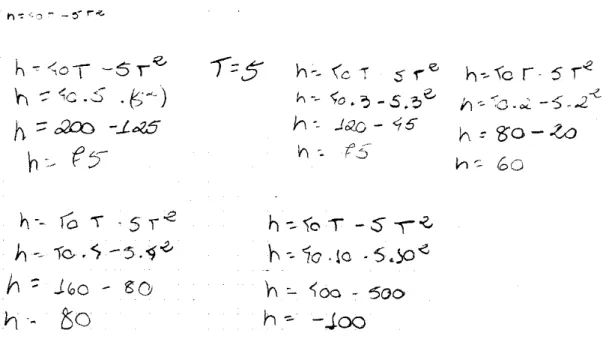 h=40T-5T²
h=40T-5T² T=5
h=40.5.(5²)
h=200-125
h=75
h=40T-5T²
h=40.3-5.3²
h=120-45
h=75
h=40T-5T²
h=40.2-5.2²
h=80-20
h=60
h=40T-5T²
h=40.4-5.4²
h=160-80
h=80
h=40T-5T²
h=40.10-5.10²
h=400-500
h=-100